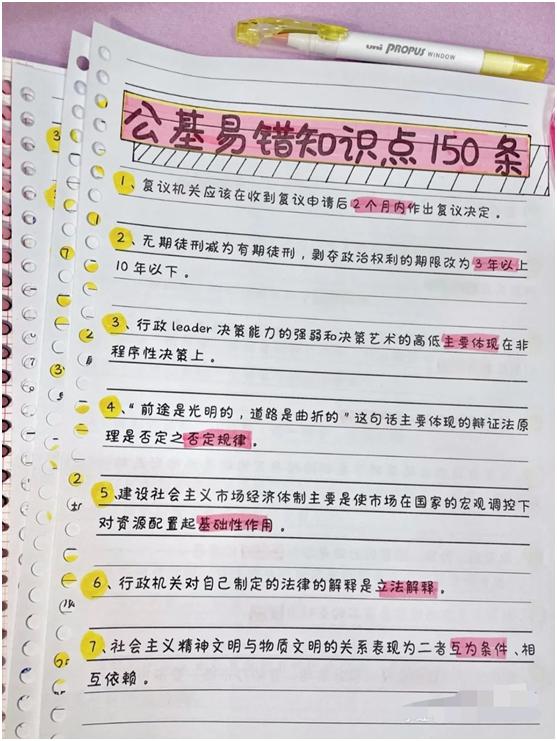 uni PROPUS WINDOW
公基易错知识点150条
1、复议机关应该在收到复议申请后2个月内作出复议决定。
2、无期徒刑减为有期徒刑，剥夺政治权利的期限改为3年以上
10年以下。
3、行政leader决策能力的强弱和决策艺术的高低主要体现在非
程序性决策上。
4、“前途是光明的，道路是曲折的”这句话主要体现的辩证法原
理是否定之否定规律。
5、建设社会主义市场经济体制主要是使市场在国家的宏观调控下
对资源配置起基础性作用。
6、行政机关对自己制定的法律的解释是立法解释。
7、社会主义精神文明与物质文明的关系表现为二者互为条件、相
互依赖。